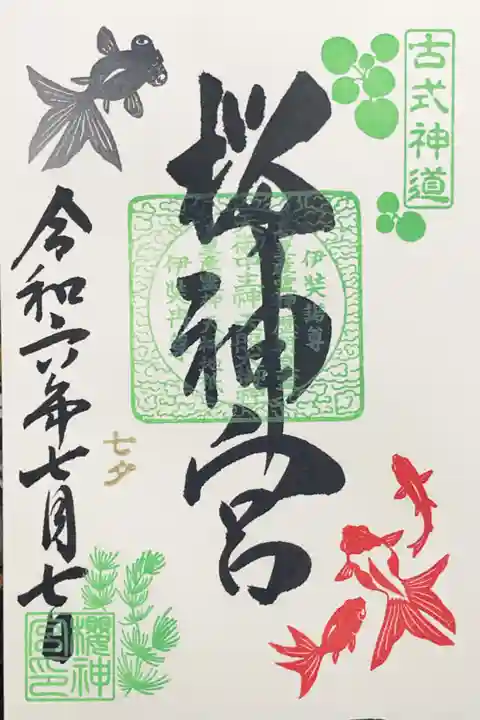 古式神道
桜神宮
伊奘諾尊
七夕
令和六年七月七日
櫻神宮印